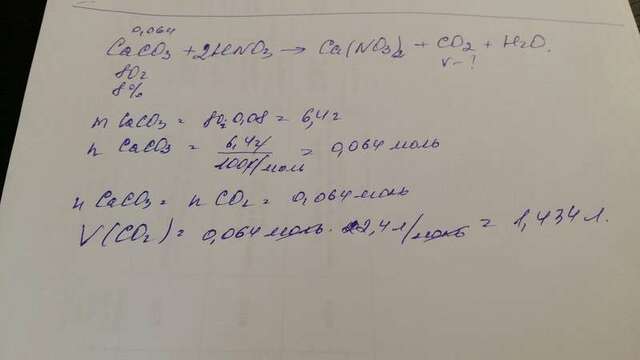 0,064
CaCO3 + 2HNO3 → Ca(NO3)2 + CO2 + H2O.
80г V - ?
8%
m CaCO3 = 80г·0,08 = 6,4г
n CaCO3 = 6,4г/100г/моль = 0,064 моль
n CaCO3 = n CO2 = 0,064 моль
V(CO2) = 0,064 моль · 22,4 л/моль = 1,434 л.